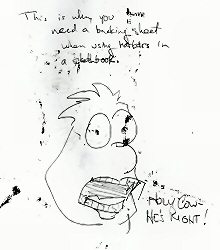 This is why you
need a backing sheet
when using markers in
a sketchbook.
HOLY COW-
HE'S RIGHT!